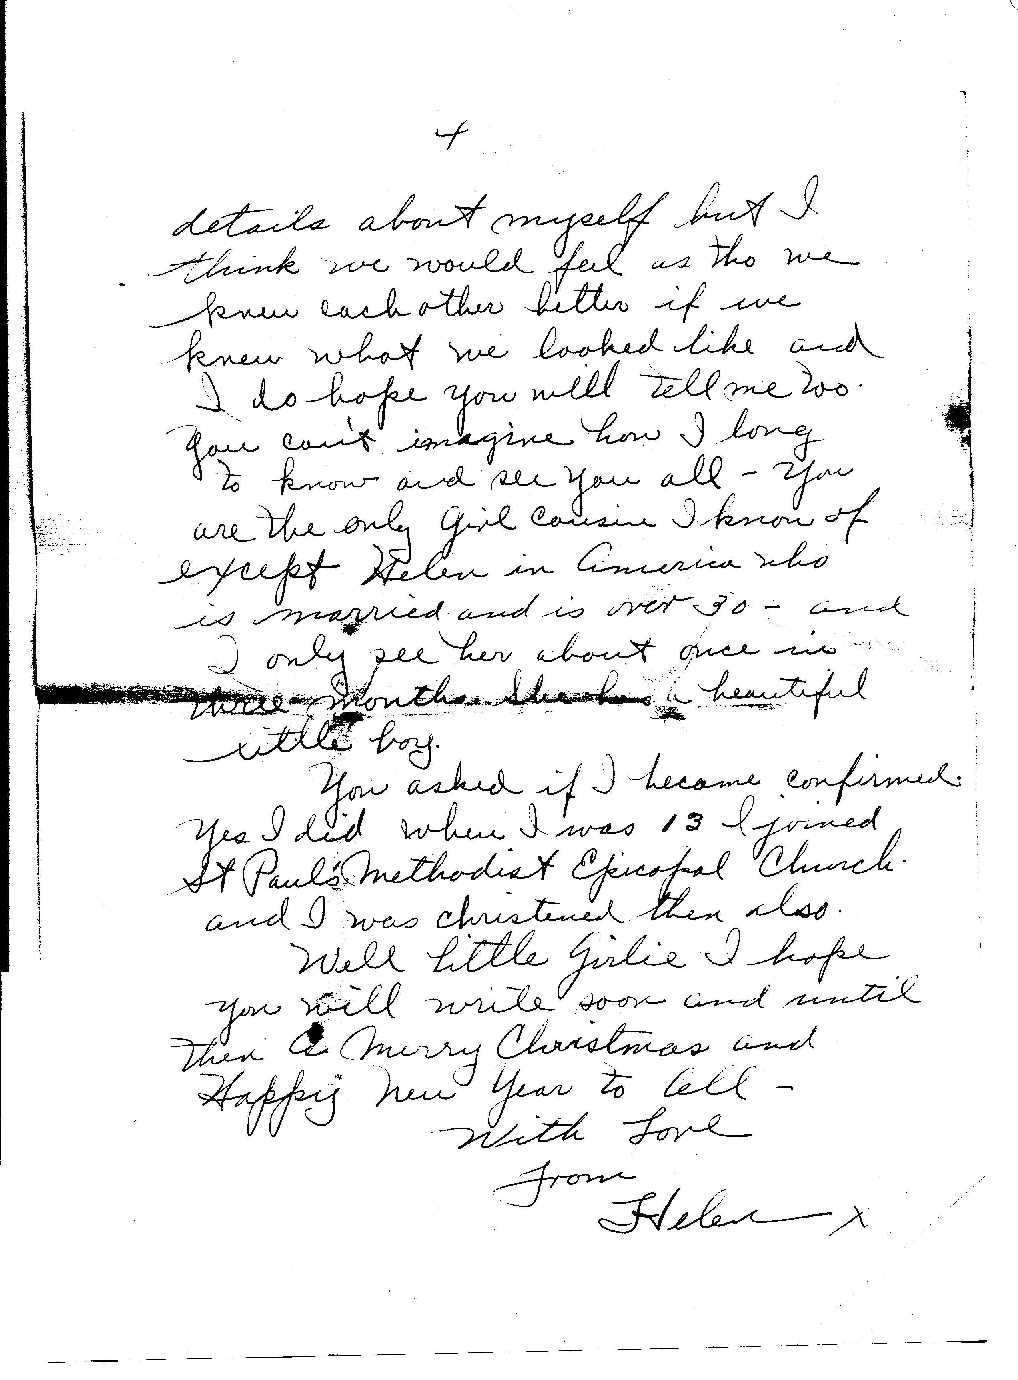 4
details about myself but I
think we would feel as tho we
knew each other better if we
knew what we looked like and
I do hope you will tell me too.
You can't imagine how I long
to know and see you all - You
are the only Girl cousin I know of
except Helen in America who
is married and is over 30 - and
I only see her about once in
three months. She has a beautiful
little boy.
You asked if I became confirmed.
Yes I did when I was 13 I joined
St Paul's Methodist Episcopal Church.
and I was christened then also.
Well little Girlie I hope
you will write soon and until
then A Merry Christmas and
Happy New Year to all -
With Love
From
Helen x